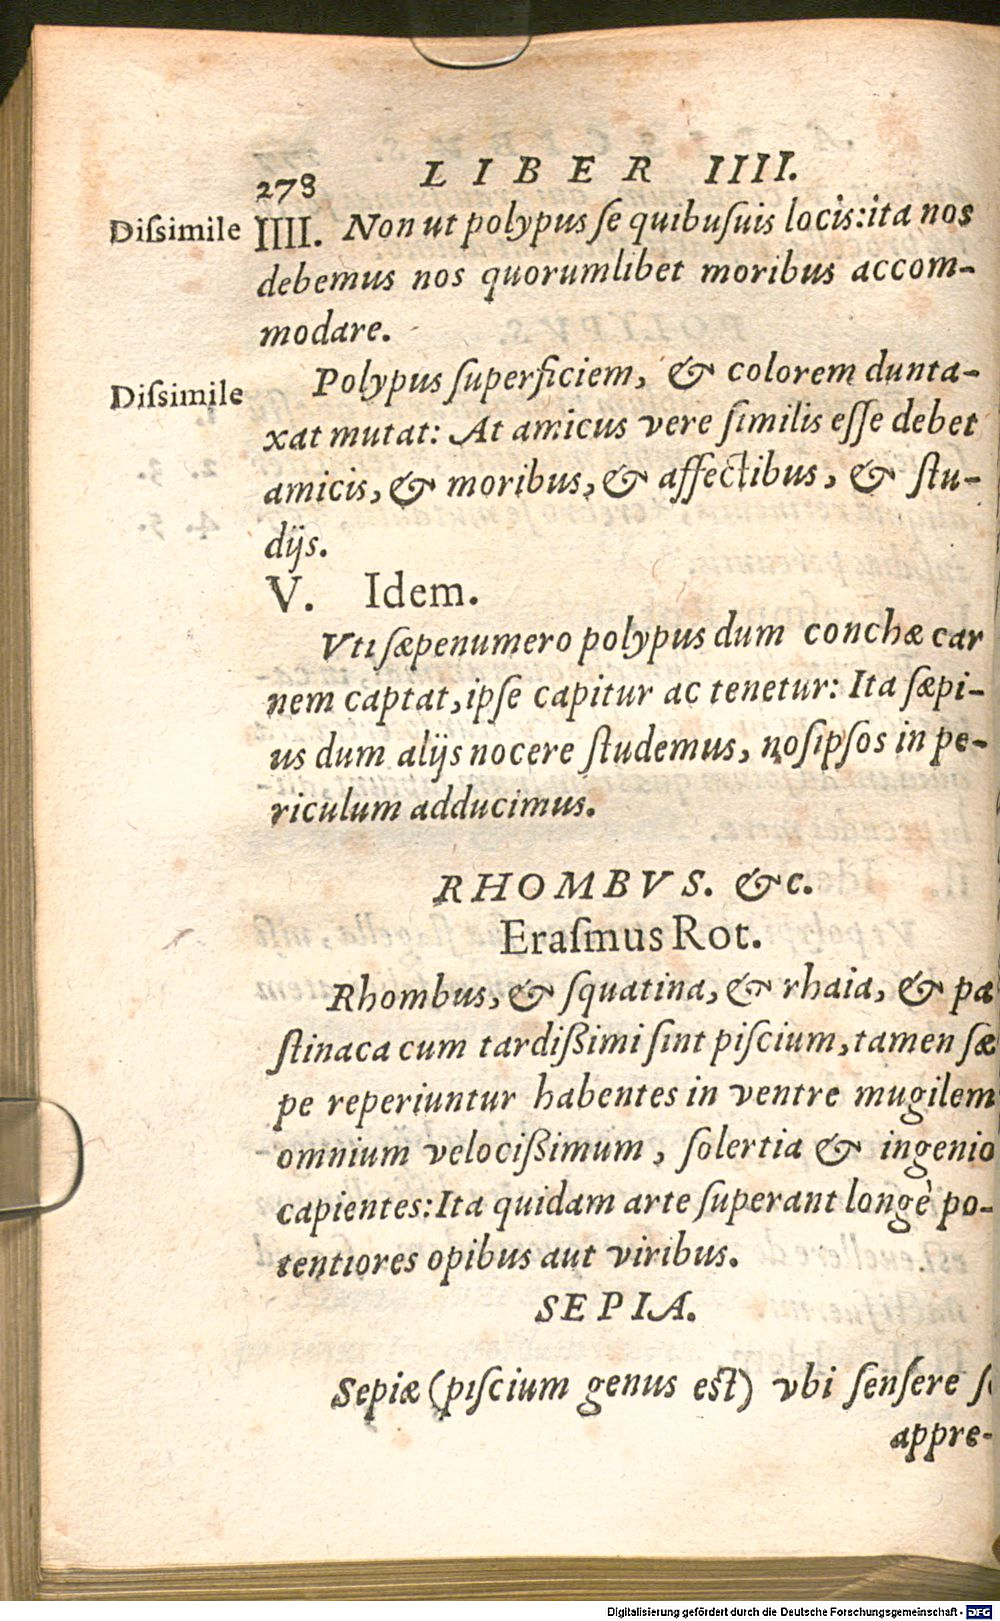 278 LIBER IIII.
Diſsimile IIII. Non ut polypus ſe quibuſuis locis: ita nos
debemus nos quorumlibet moribus accom-
modare.
Diſsimile Polypus ſuperficiem, & colorem dunta-
xat mutat: At amicus vere ſimilis eſſe debet
amicis, & moribus, & affectibus, & ſtu-
dijs.
V. Idem.
Vti ſæpenumero polypus dum conchæ car
nem captat, ipſe capitur ac tenetur: Ita ſæpi-
us dum alijs nocere ſtudemus, noſipſos in pe-
riculum adducimus.
RHOMBVS. &c.
Eraſmus Rot.
Rhombus, & ſquatina, & rhaia, & pa
ſtinaca cum tardißimi ſint piſcium, tamen ſæ
pe reperiuntur habentes in ventre mugilem
omnium velocißimum, ſolertia & ingenio
capientes: Ita quidam arte ſuperant longè po-
tentiores opibus aut viribus.
SEPIA.
Sepiæ (piſcium genus eſt) vbi ſenſere
appre-
Digitalisierung gefördert durch die Deutsche Forschungsgemeinschaft - DFG